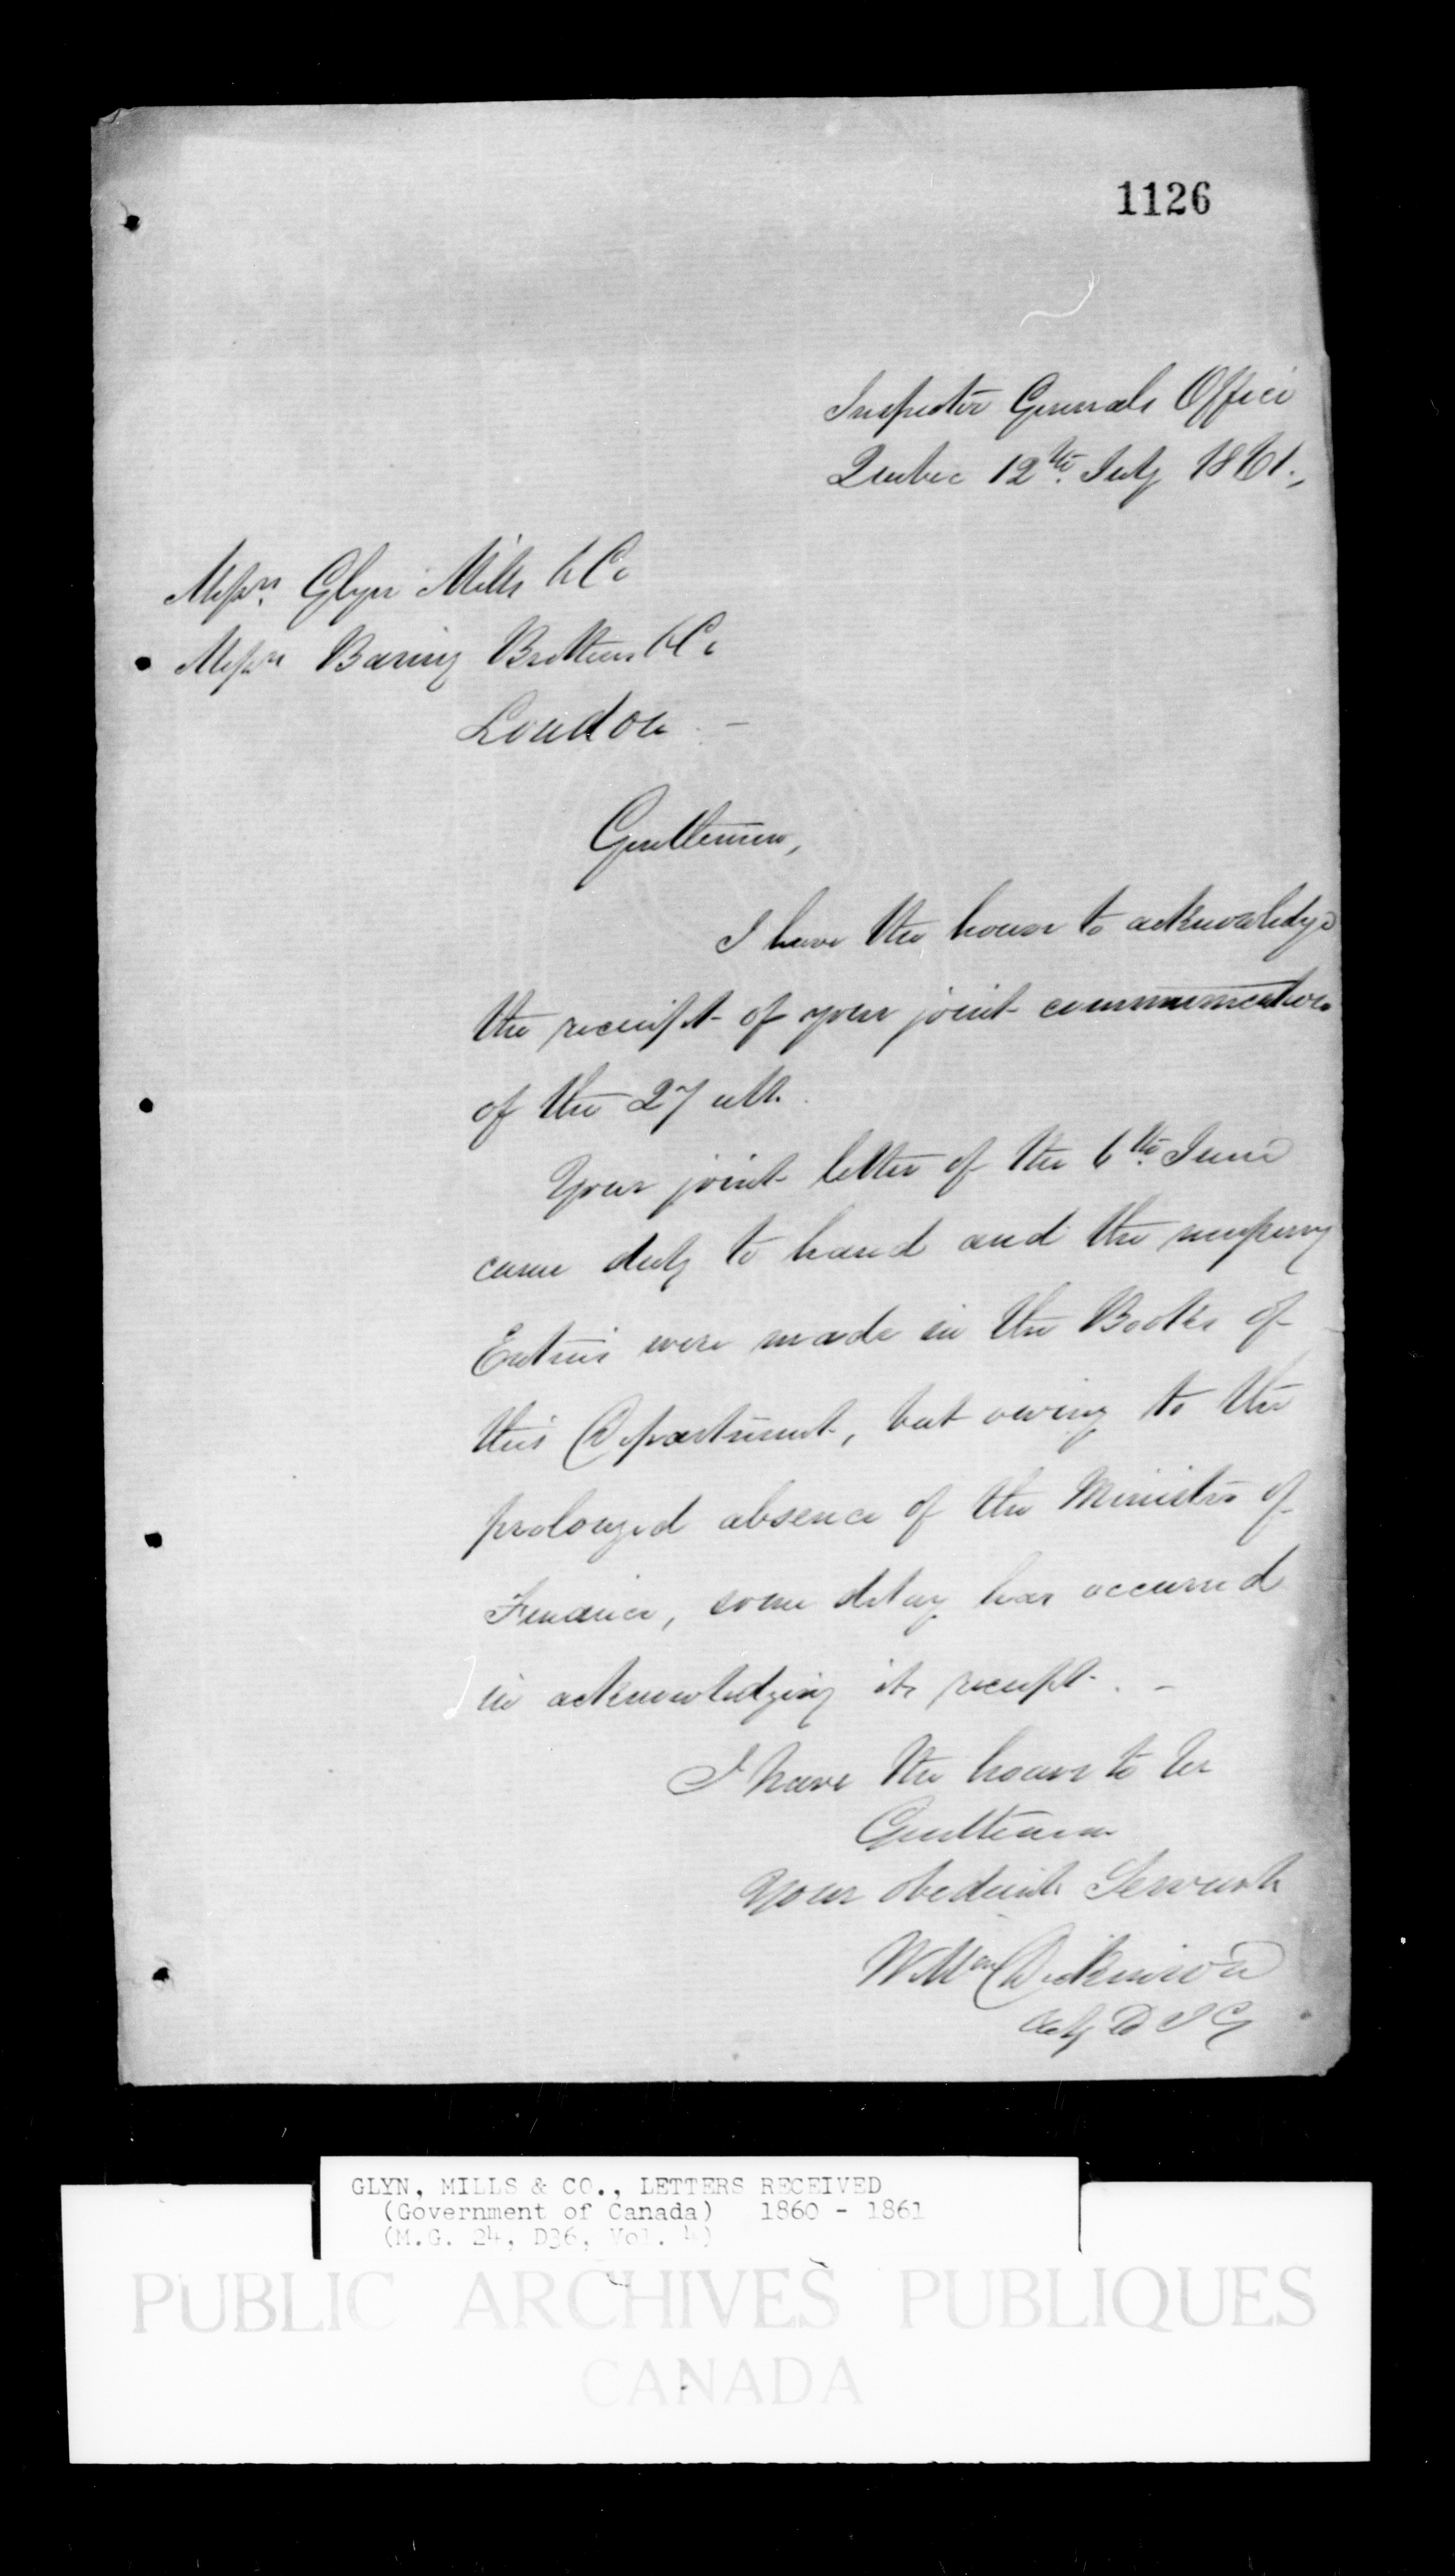 1126
Inspector Generals Office
Quebec 12th. July 1861.
Messrs. Glyn Mills & Co
Messrs Baring Brothers & Co
London -
Gentlemen,
I have the honor to acknowledge
the receipt of your joint communication
of the 27 ult.
Your joint letter of the 6th. June
came duly to hand and the necessary
Entries were made in the Books of
this Department, but owing to the
prolonged absence of the Minister of
Finance, some delay has occurred
in acknowledging its receipt. -
I have the honor to be
Gentlemen
Your obedient Servant
Willm Dickinson
Actg D I G
GLYN, MILLS & CO., LETTERS RECEIVED
(Government of Canada) 1860 - 1861
(M.G. 24, D36, Vol. 4)
PUBLIC ARCHIVES PUBLIQUES
CANADA